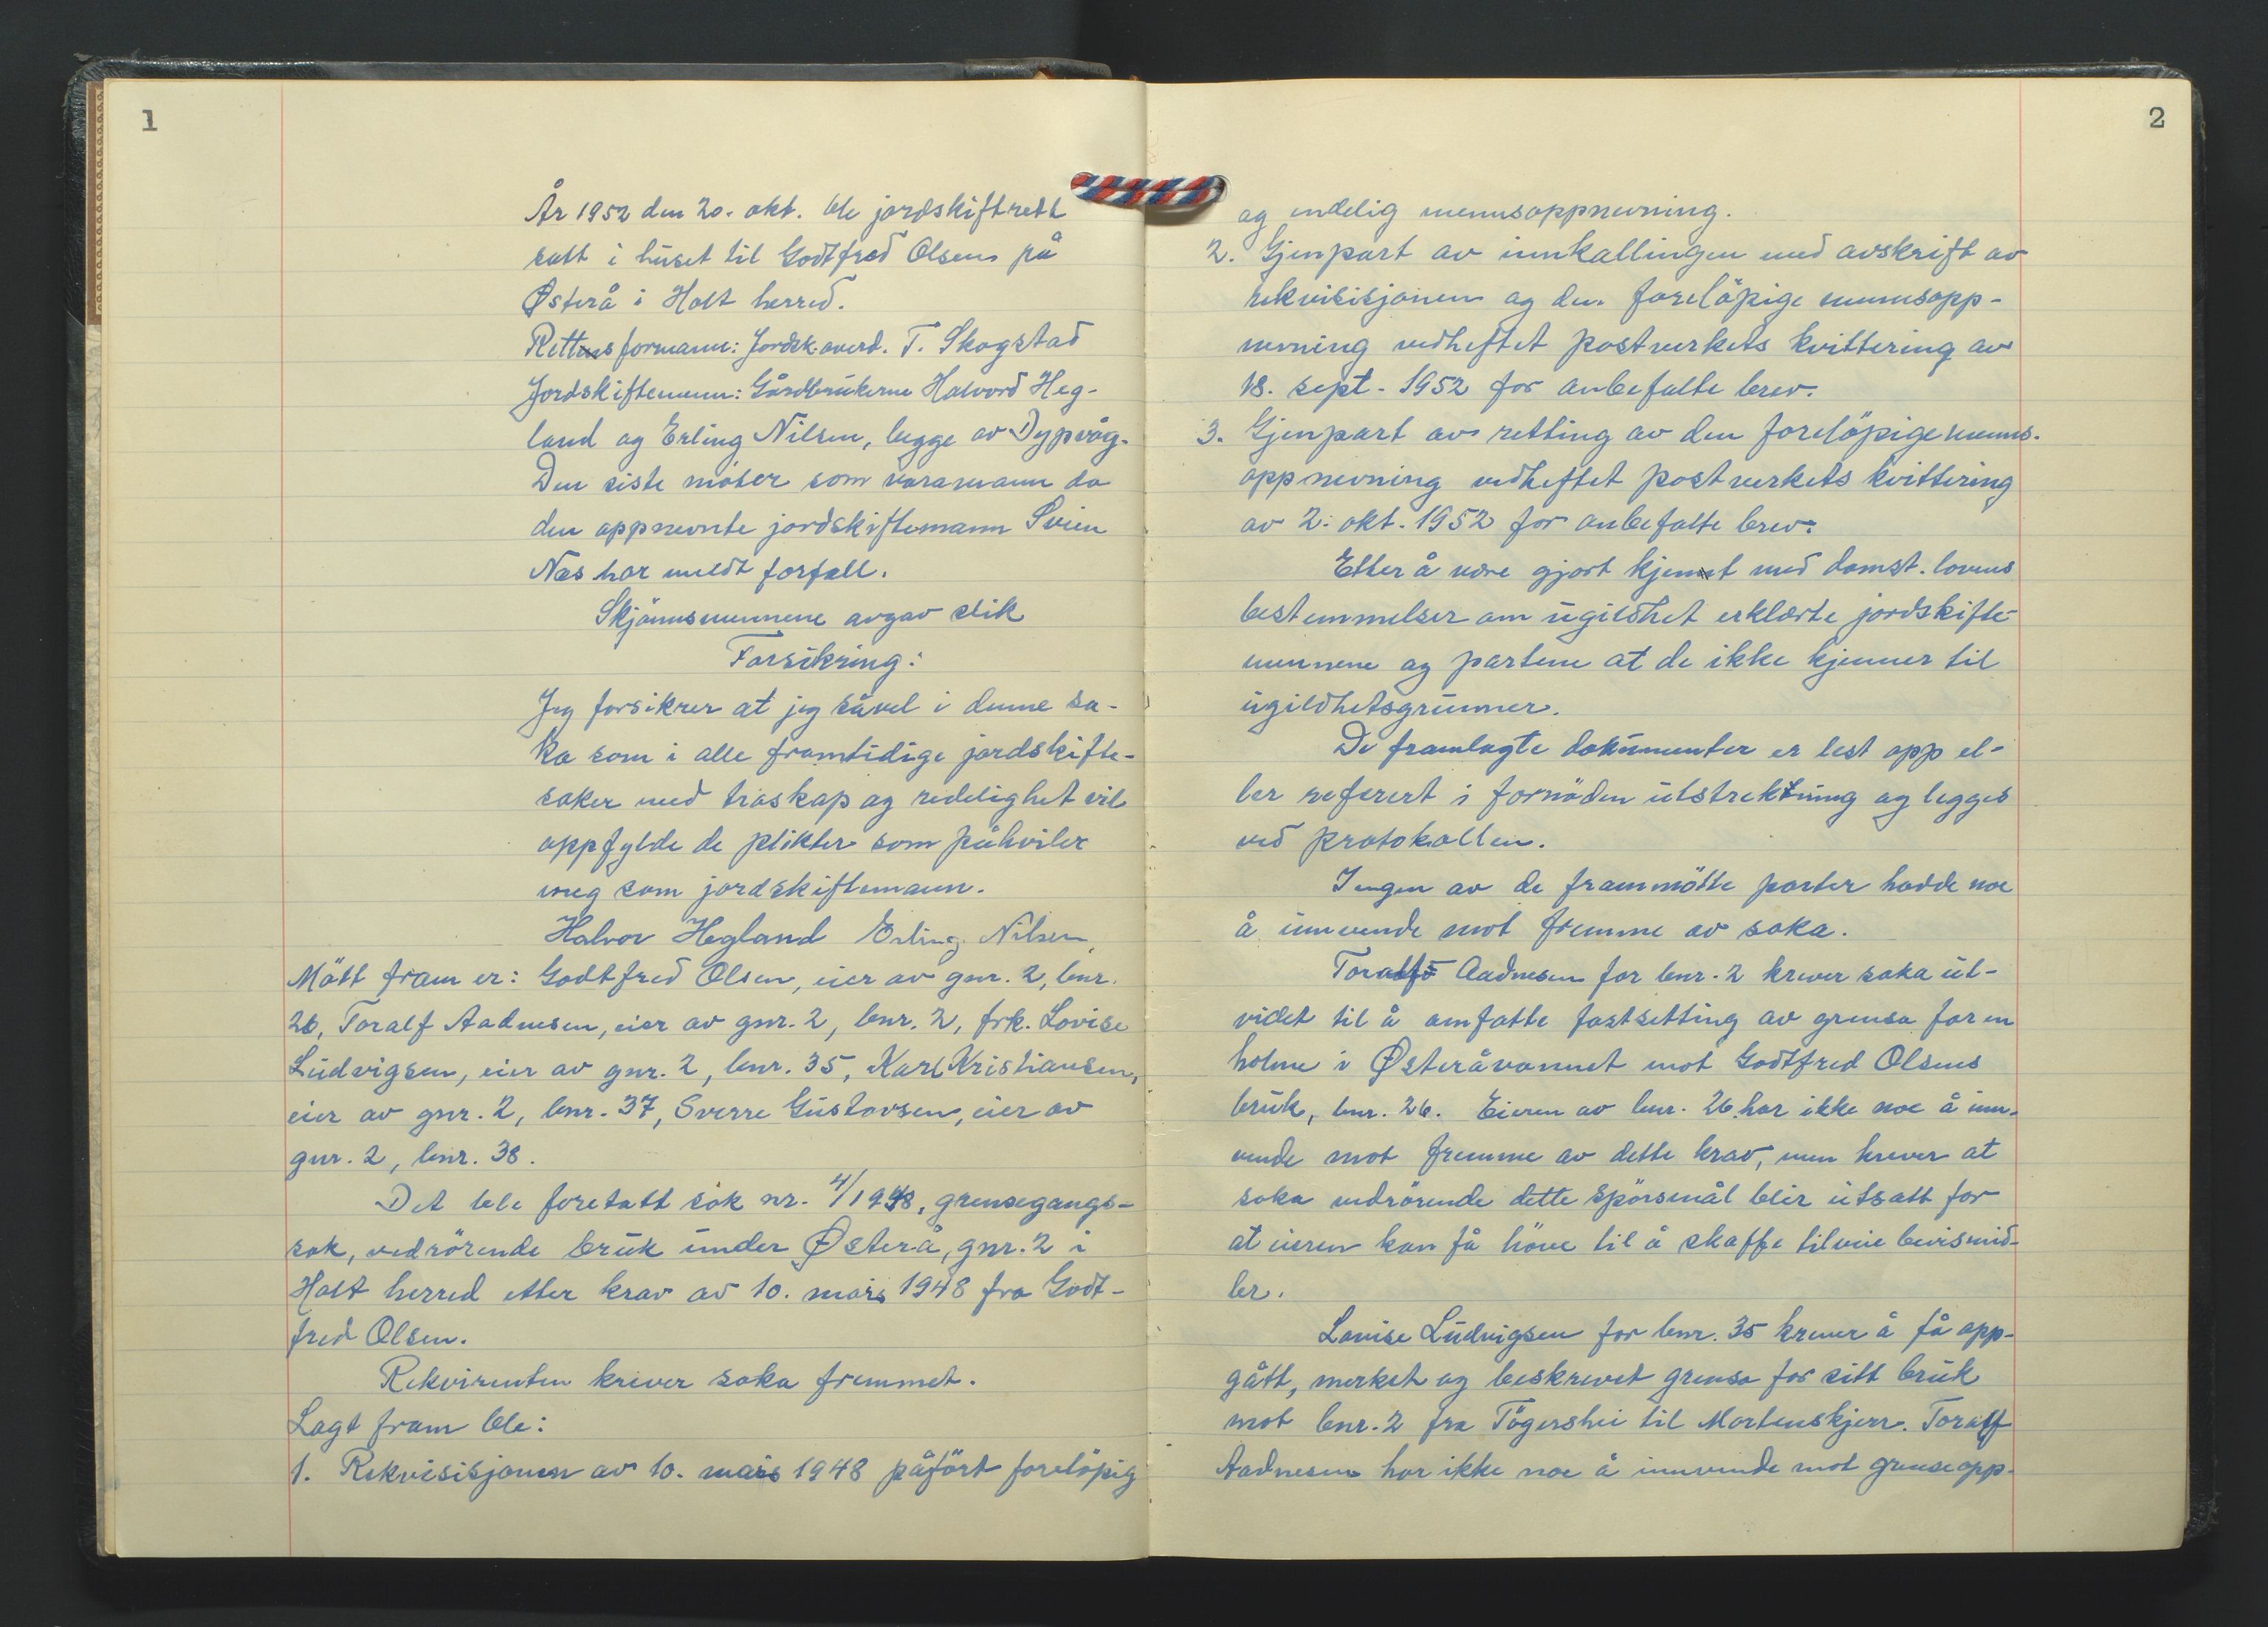 1
År 1952 den 20. okt. ble jordskiftrett
satt i huset til Godtfred Olsen på
Østerå i Holt herred.
Rettens formann: Jordsk.overd. T. Skogstad
Jordskiftemenn: Gårdbrukerne Halvord Heg-
land og Erling Nilsen, begge av Dypvåg.
Den siste møter som varamann da
den oppnevnte jordskiftemann Svien
Næs har meldt forfall.
Skjønnsmennene avgav slik
Forsikring:
Jeg forsikrer at jeg såvel i denne sa-
ka som i alle framtidige jordskifte-
saker med troskap og redelighet vil
oppfylde de plikter som påhviler
meg som jordskiftemann.
Halvor Hegland Erling Nilsen
Møtt fram er: Godtfred Olsen, eier av gnr. 2, bnr.
26, Toralf Aadnesen, eier av gnr. 2, bnr. 2, frk. Lovise
Ludvigsen, eier av gnr. 2, bnr. 35, Karl Kristiansen,
eier av gnr. 2, bnr. 37, Sverre Gustavsen, eier av
gnr. 2, bnr. 38.
Det ble foretatt sak nr. 4/1948, grensegangs-
sak, vedrørende bruk under Østerå, gnr. 2 i
Holt herred etter krav av 10. mars 1948 fra Godt-
fred Olsen.
Rekvirenten krever saka fremmet.
Lagt fram ble:
1. Rekvisisjonen av 10. mars 1948 påført foreløpig
2
og endelig mennsoppnevning.
2. Gjenpart av innkallingen med avskrift av
rekvisisjonen og den foreløpige mennsopp-
nevning vedheftet postverkets kvittering av
18. sept. 1952 for anbefalte brev.
3. Gjenpart av retting av den foreløpige menns-
oppnevning vedheftet postverkets kvittering
av 2. okt. 1952 for anbefalte brev.
Etter å være gjort kjent med domst. lovens
bestemmelser om ugildhet erklærte jordskifte-
mennene og partene at de ikke kjenner til
ugildhetsgrunner.
De framlagte dokumenter er lest opp el-
ler referert i fornøden utstrekning og legges
ved protokollen.
Ingen av de frammøtte parter hadde noe
å innvende mot fremme av saka.
Toralf Aadnesen for bnr. 2 krever saka ut-
videt til å omfatte fastsetting av grensa for en
holme i Østeråvannet mot Godtfred Olsens
bruk, bnr. 26. Eieren av bnr. 26 har ikke noe å inn-
vende mot fremme av dette krav, men krever at
saka vedrørende dette spørsmål blir utsatt for
at eieren kan få høve til å skaffe tilveie bevismid-
ler.
Lovise Ludvigsen for bnr. 35 krever å få opp-
gått, merket og beskrevet grensa for sitt bruk
mot bnr. 2 fra Tøgershei til Mortenskjerr. Toralf
Aadnesen har ikke noe å innvende mot grenseopp-